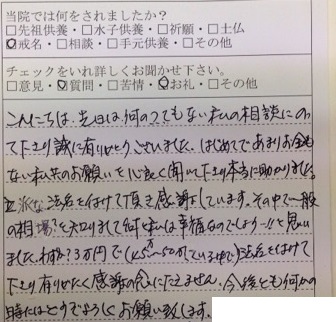 当院では何をされましたか？
□先祖供養・□水子供養・□祈願・□土仏
☑戒名・□相談・□手元供養・□その他
チェックをいれ詳しくお聞かせ下さい。
□意見・☑質問・□苦情・☑お礼・□その他
こんにちは、先日は何のつてもない私の相談にのっ
て下さり誠に有りがとうございました。はじめてであまりお金も
ない私共のお願いを心良く聞いて下さり本当に助かりました。
立派な法名を付けて頂き感謝しています。その中で一般
の相場を知りまして何と私は幸福なのでしょう!!と思い
ました。わずか3万円で法名を付けて
下さり有りがたく感謝の念にたえません。今後とも何かの
時にはどうぞよろしくお願い致します。